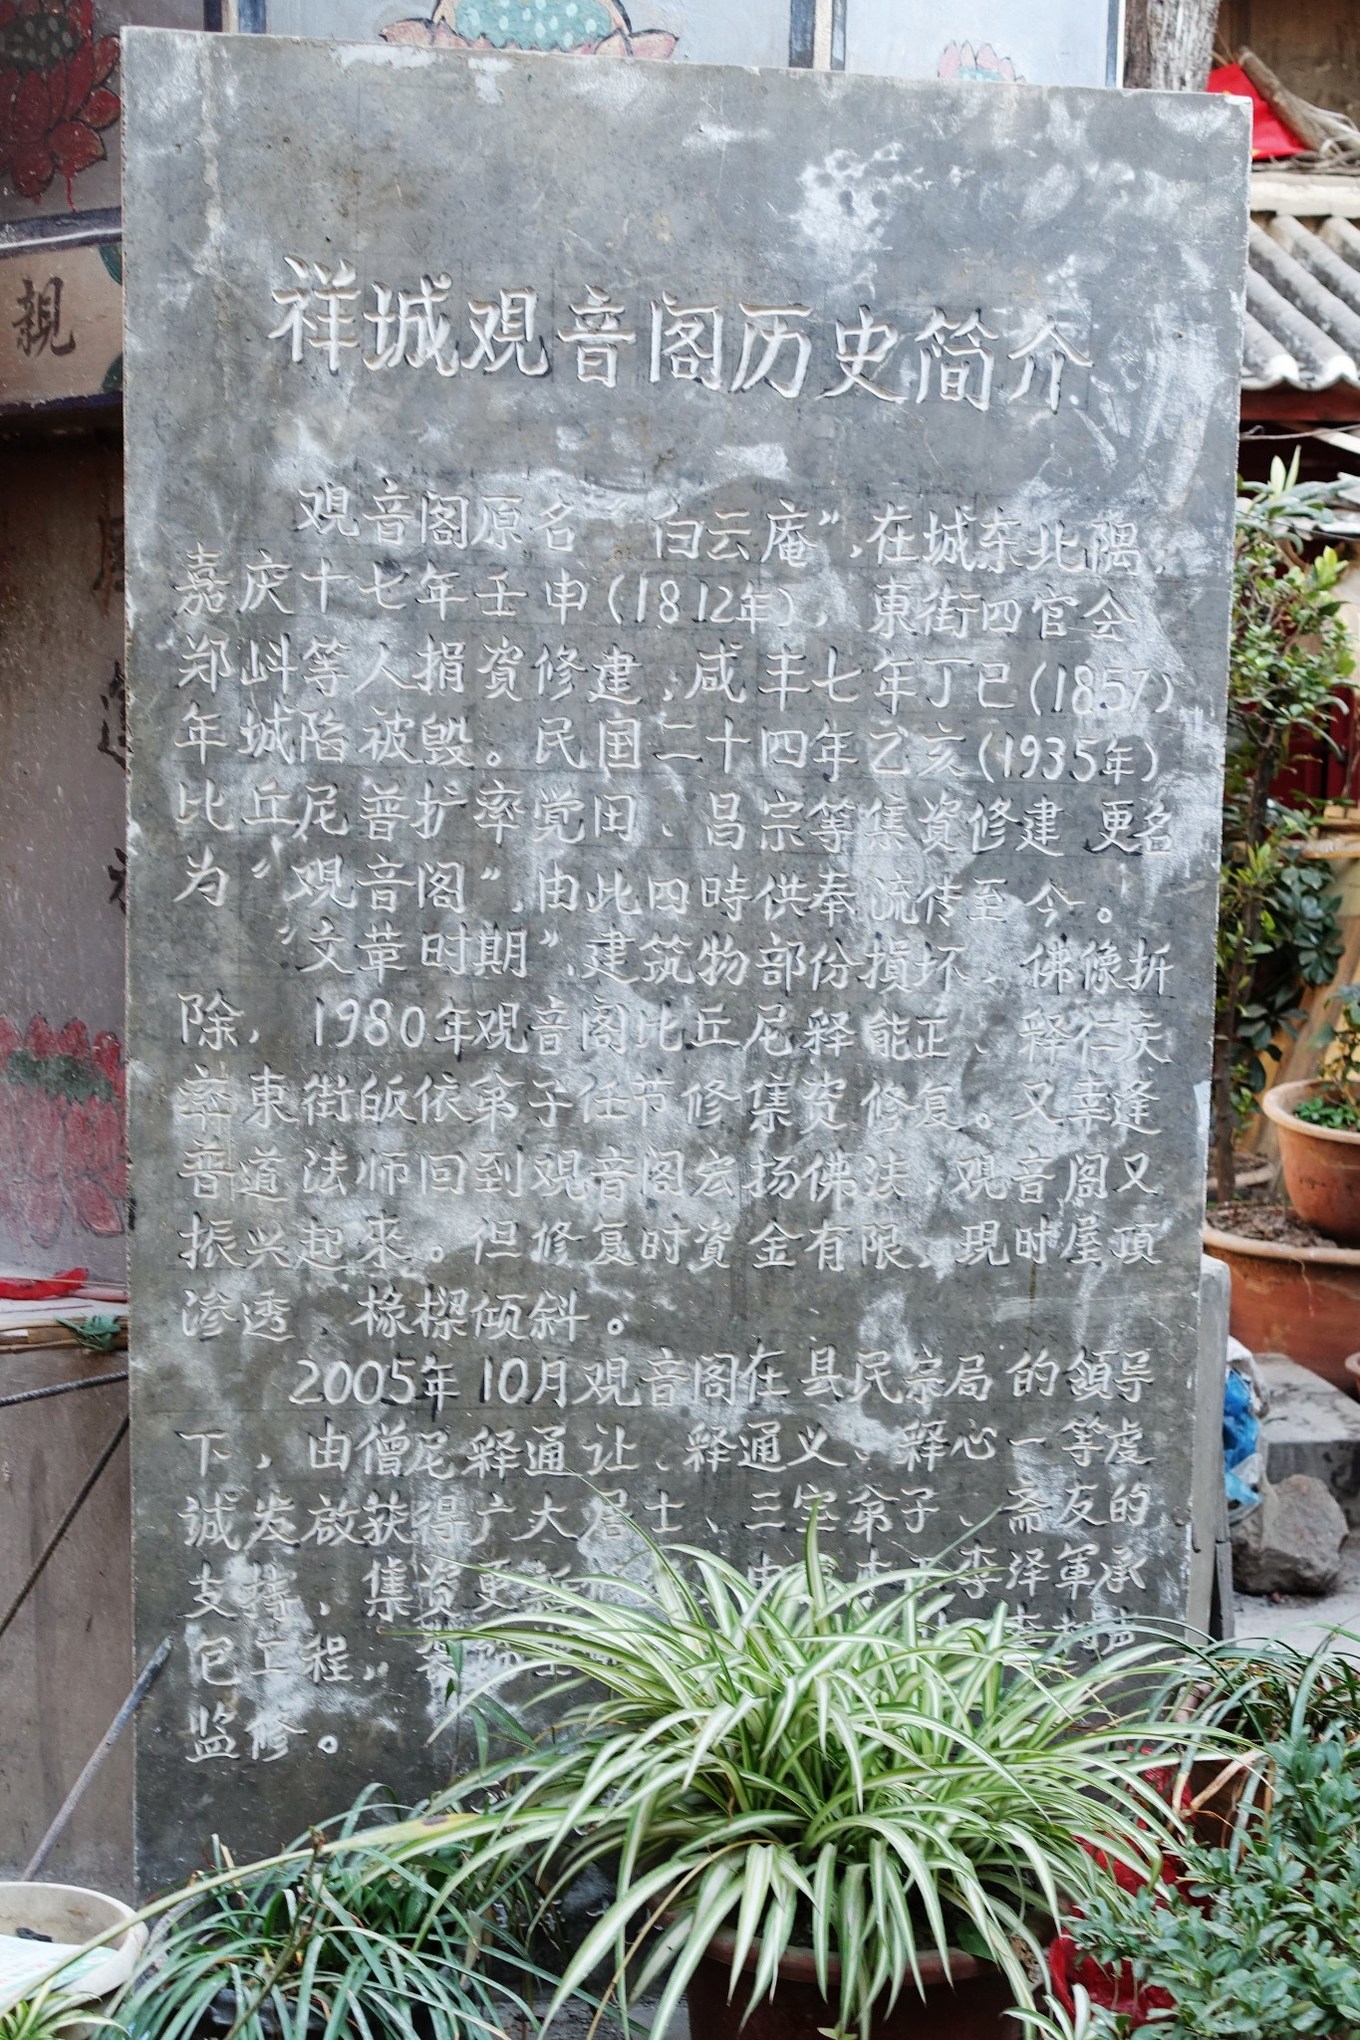 祥城观音阁历史简介
观音阁原名"白云庵",在城东北隅,
嘉庆十七年壬申(1812年),東街四官会
郑 等人捐資修建,咸丰七年丁巳(1857)
年城陷被毁。民国二十四年乙亥(1935年)
比丘尼普扩率觉田、昌宗等集资修建 更名
为"观音阁",由此四時供奉流传至今。
"文革时期",建筑物部份損坏,佛像折
除,1980年观音阁比丘尼释能正、释仁庆
率東街皈依第子任节修集资修复。又幸逢
普道法师回到观音阁宏扬佛法,观音阁又
振兴起来。但修复时資金有限,現时屋頂
渗透,椽樑倾斜。
2005年10月观音阁在县民宗局的領导
下,由僧尼释通让、释通义、释心一等虔
诚发啟获得广大居士、三宝弟子、斋友的
支持,集资更新 李泽軍承
包工程,
监修。
親